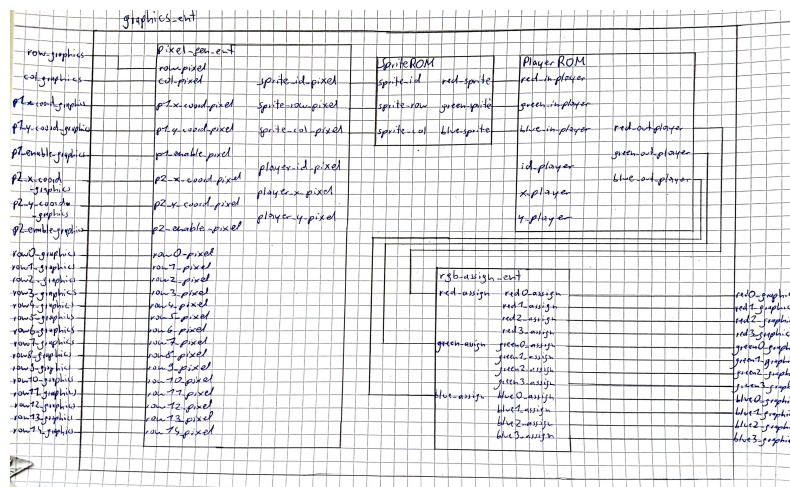 graphics_ent
row_graphics
col_graphics
p1_x_coord_graphics
p1_y_coord_graphics
p1_enable_graphics
p2_x_coord
_graphics
p2_y_coord
_graphics
p2_enable_graphics
row0_graphics
row1_graphics
row2_graphics
row3_graphics
row4_graphics
row5_graphics
row6_graphics
row7_graphics
row8_graphics
row9_graphic
row10_graphics
row11_graphics
row12_graphics
row13_graphics
row14_graphics
pixel_gen_ent
row_pixel
col_pixel
p1_x_coord_pixel
p1_y_coord_pixel
p1_enable_pixel
p2_x_coord_pixel
p2_y_coord_pixel
p2_enable_pixel
row0_pixel
row1_pixel
row2_pixel
row3_pixel
row4_pixel
row5_pixel
row6_pixel
row7_pixel
row8_pixel
row9_pixel
row10_pixel
row11_pixel
row12_pixel
row13_pixel
row14_pixel
sprite_id_pixel
sprite_row_pixel
sprite_col_pixel
player_id_pixel
player_x_pixel
player_y_pixel
SpriteROM
sprite_id
sprite_row
sprite_col
red_sprite
green_sprite
blue_sprite
PlayerROM
red_in_player
green_in_player
blue_in_player
id_player
x_player
y_player
red_out_player
green_out_player
blue_out_player
rgb_assign_ent
red_assign
green_assign
blue_assign
red0_assign
red1_assign
red2_assign
red3_assign
green0_assign
green1_assign
green2_assign
green3_assign
blue0_assign
blue1_assign
blue2_assign
blue3_assign
red0_graphi
red1_graphi
red2_graphi
red3_graphi
green0_graph
green1_graph
green2_graph
green3_graph
blue0_graph
blue1_graph
blue2_graph
blue3_graph